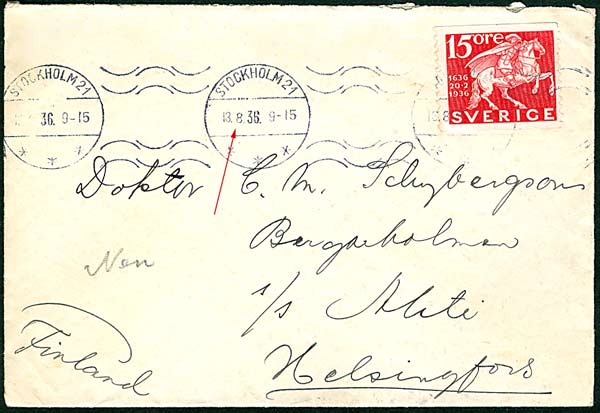 STOCKHOLM 21
36. 9-15
STOCKHOLM 21
13.8.36. 9-15
13.8
15 öre
1636
20-2
1936
SVERIGE
Doktor C. M. Schybergson
Bergöeholmen
Nen
s/s Ahti
Finland
Helsingfors